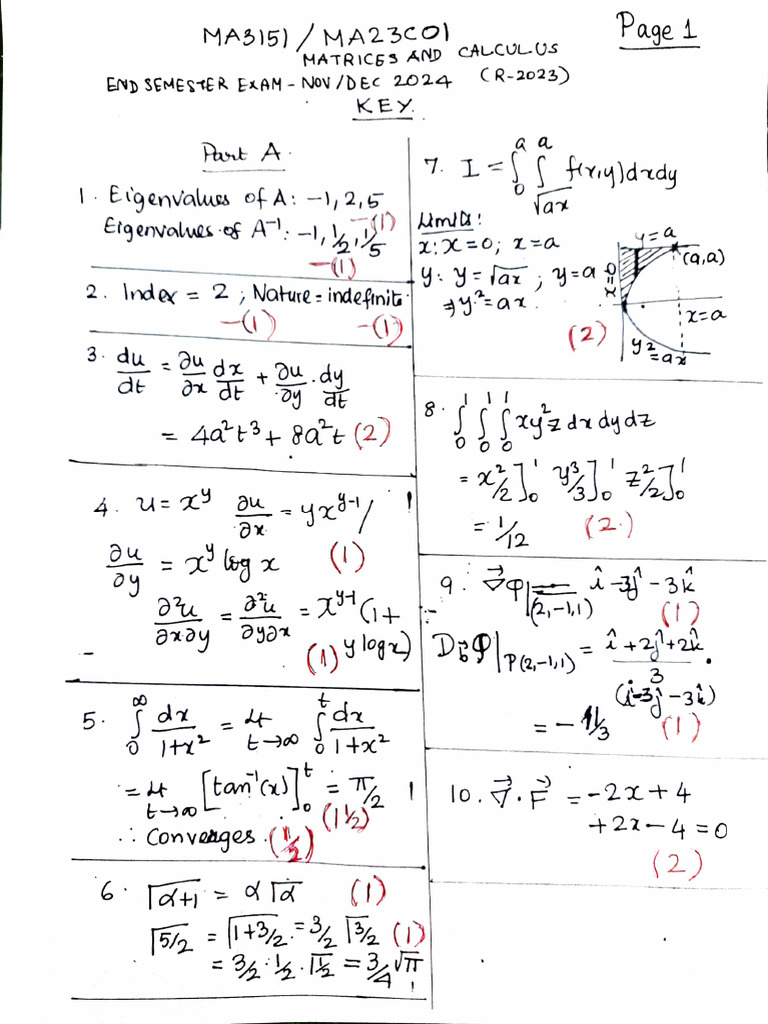 Page 1
MA3151 / MA23C01
MATRICES AND CALCULUS
END SEMESTER EXAM - NOV/DEC 2024 (R-2023)
KEY
Part A
1. Eigenvalues of A: -1, 2, 5
-(1)
Eigenvalues of A⁻¹: -1, 1/2, 1/5
-(1)
2. Index = 2 ; Nature = indefinite
-(1) -(1)
3. du/dt = ∂u/∂x dx/dt + ∂u/∂y . dy/dt
= 4a²t³ + 8a²t (2)
4. u = x^y ∂u/∂x = yx^(y-1)
∂u/∂y = x^y log x (1)
∂²u/∂x∂y = ∂²u/∂y∂x = x^(y-1) (1+
(1) y log x)
5. ∫₀^∞ dx/(1+x²) = Lt t→∞ ∫₀^t dx/(1+x²)
= Lt t→∞ [tan⁻¹(x)]₀^t = π/2
(1 1/2)
∴ Converges. (1/2)
6. Γα+1 = α Γα (1)
Γ5/2 = Γ1+3/2 = 3/2 Γ3/2 (1)
= 3/2 . 1/2 . Γ1/2 = 3/4 √π
7. I = ∫₀^a ∫_√ax^a f(x,y) dx dy
Limits:
x: x = 0; x = a
y: y = √ax ; y = a
⇒ y² = ax
(2)
y = a
(a,a)
x = 0
x = a
y² = ax
8. ∫₀¹ ∫₀¹ ∫₀¹ xy²z dx dy dz
= x²/2]₀¹ y³/3]₀¹ z²/2]₀¹
= 1/12 (2)
9. ∇φ|(2,-1,1) = î - 3ĵ - 3k̂
(1)
Dφ|P(2,-1,1) = (î + 2ĵ + 2k̂)/3 .
(î - 3ĵ - 3k̂)
= -11/3 (1)
10. ∇ . F = -2x + 4
+ 2x - 4 = 0
(2)